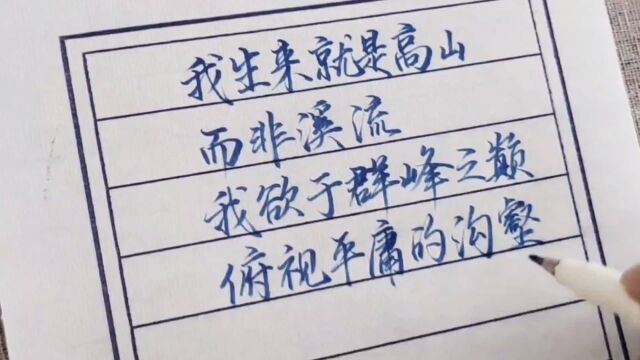 我生来就是高山
而非溪流
我欲于群峰之巅
俯视平庸的沟壑